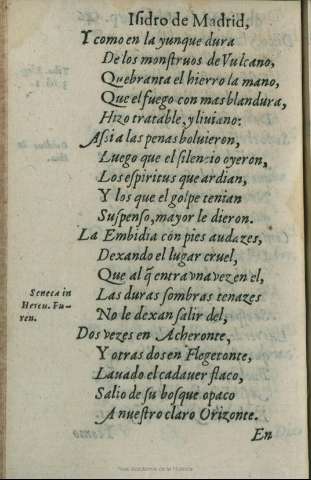 Isidro de Madrid,
Y como en la yunque dura
De los monstruos de Vulcano,
Quebranta el hierro la mano,
Que el fuego con mas blandura,
Hizo tratable, y liuiano:
Assi a las penas boluieron,
Luego que el silencio oyeron,
Los espiritus que ardian,
Y los que el golpe tenian
Suspenso, mayor le dieron.
La Embidia con pies audazes,
Dexando el lugar cruel,
Que al q̃ entra vna vez en el,
Las duras sombras tenazes
No le dexan salir del,
Seneca in
Hercu. Fu-
ren.
Dos vezes en Acheronte,
Y otras dos en Flegetonte,
Lauado el cadauer flaco,
Salio de su bosque opaco
A nuestro claro Orizonte.
En
Real Academia de la Historia